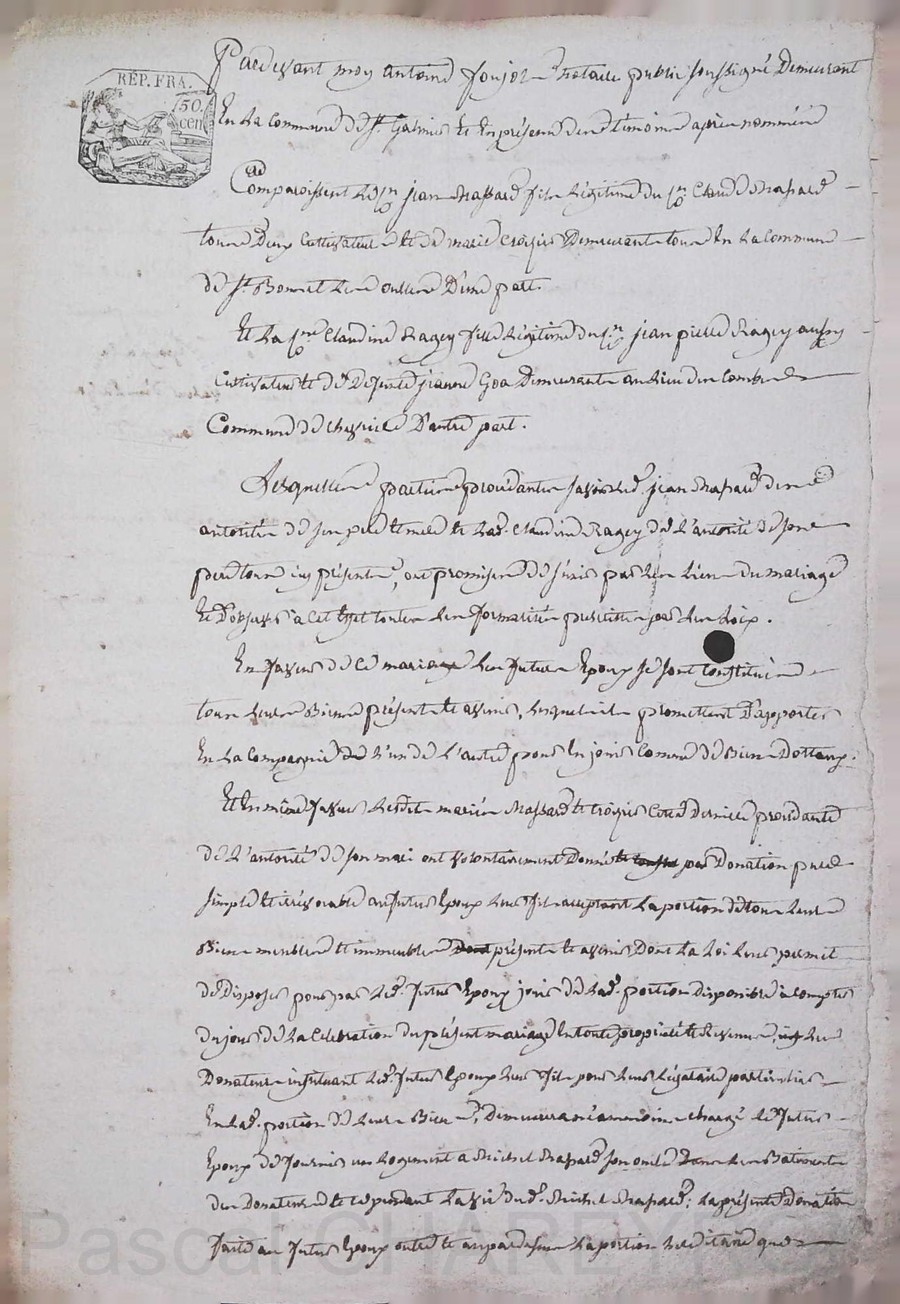 RÉP. FRA.
50.
cen
Pardevant moy antoine notaire public soussigné Demeurant
En la Commune de St. Galmier et En présence des témoins après nommés
Comparoissent le Sr. jean Massard fils Légitime du Sr. Claude Massard
tous Deux Cultivateurs et de marie Crozier Demeurants tous En la Commune
de St. Bonnet les oulles D'une part.
Et la Claudine Ragey fille Légitime du Sr. jean pierre Ragey aussy
Cultivateur et de Defunte jeanne Demeurante au lieu des Combes
Commune de D'autre part.
Lesquelles parties procédantes savoir led. jean Massard des
autorités de ses pere et mere et lad. Claudine Ragey de L'autorité de son
pere tous icy présents, ont promis de s'unir par les Liens du mariage
et D'observer à cet Effet toutes les formalités par les Loix.
En faveur de ce mariage les futurs Epoux se sont Constitués
tous leurs Biens présents et avenir, lesquels ils promettent D'apporter
En la Compagnie de L'un de L'autre pour En jouir Comme de Biens Dotaux.
Et En même faveur lesdits mariés Massard et Crozier Cette Derniere procédante
de L'autorité de son mari ont volontairement Donné par Donation pure
simple et irrévocable au futur Epoux leur fils acceptant la portion de tous leurs
Biens meubles et immeubles présents et avenir Dont la Loi leur permet
de Disposer pour par led. futur Epoux jouir de lad. portion disponible à Compter
du jour de la Célébration du présent mariage En toute propriété et Revenus, les
Donateurs instituant led. futur Epoux leur fils pour leur Légataire particulier
En lad. portion de leurs Biens, Demeurera néanmoins chargé le futur
Epoux de fournir un Logement a Michel Massard son oncle Dans les Batiments
des Donateurs et ce pendant la vie dud. Michel Massard; la présente Donation
faite au futur Epoux outre et la portion héréditaire que
Pascal CHAREYRON